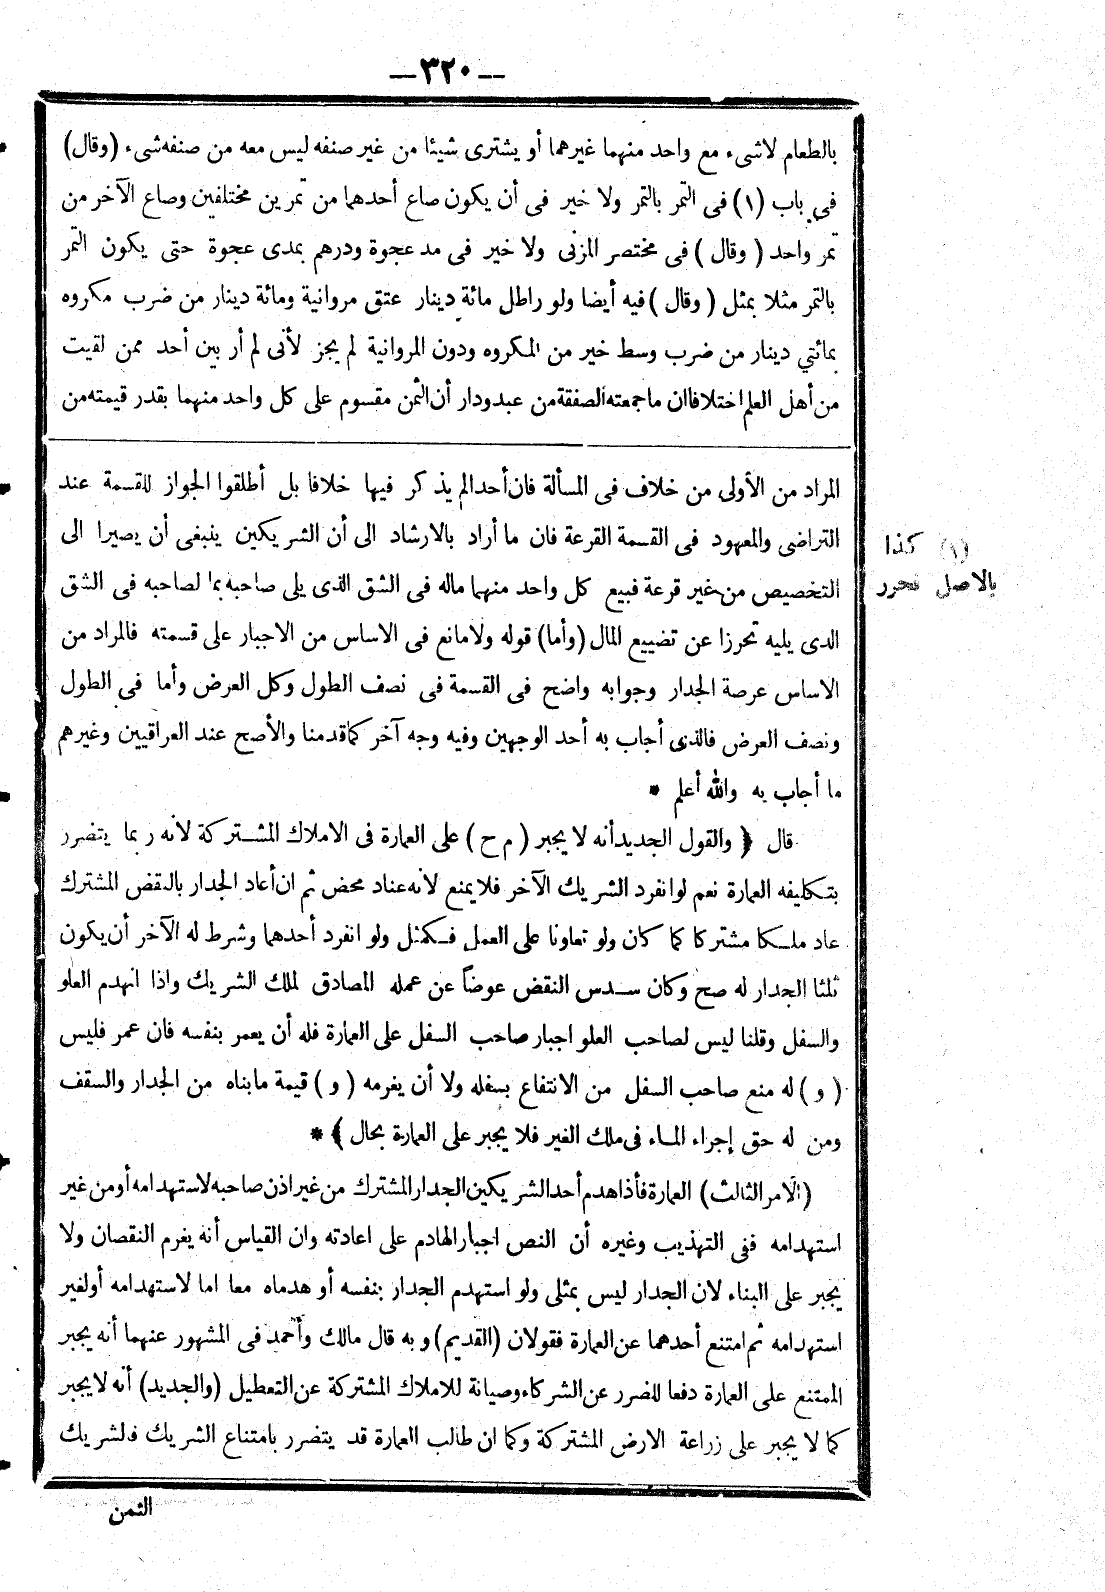 — ٣٢٠ —
بالطعام لاشىء مع واحد منهما غيرهما أو يشترى شيئا من غير صنفه ليس معه من صنفه شىء (وقال)
فى باب (١) فى التمر بالتمر ولا خير فى أن يكون صاع أحدهما من تمرين مختلفين وصاع الآخر من
تمر واحد ( وقال ) فى مختصر المزنى ولا خير فى مد عجوة ودرهم بمدى عجوة حتى يكون التمر
بالتمر مثلا بمثل ( وقال ) فيه أيضا ولو راطل مائة دينار عتق مروانية ومائة دينار من ضرب مكروه
بمائتي دينار من ضرب وسط خير من المكروه ودون المروانية لم يجز لأنى لم أر بين أحد ممن لقيت
من أهل العلم اختلافا ان ماجمعته الصفقة من عبد ودار أن الثمن مقسوم على كل واحد منهما بقدر قيمته من
المراد من الأولى من خلاف فى المسألة فان أحدا لم يذكر فيها خلافا بل أطلقوا الجواز للقسمة عند
التراضى والمعهود فى القسمة القرعة فان ما أراد بالارشاد الى أن الشريكين ينبغى أن يصيرا الى
التخصيص من غير قرعة فبيع كل واحد منهما ماله فى الشق الذى يلى صاحبه بما لصاحبه فى الشق
الذى يليه تحرزا عن تضييع المال (وأما) قوله ولامانع فى الاساس من الاجبار على قسمته فالمراد من
الاساس عرصة الجدار وجوابه واضح فى القسمة فى نصف الطول وكل العرض وأما فى الطول
ونصف العرض فالذى أجاب به أحد الوجهين وفيه وجه آخر كماقدمنا والأصح عند العراقيين وغيرهم
ما أجاب به والله أعلم *
قال ﴿ والقول الجديد أنه لا يجبر ( م ح ) على العمارة فى الاملاك المشتركة لانه ربما يتضرر
بتكليفه العمارة نعم لو انفرد الشريك الآخر فلا يمنع لانه عناد محض ثم ان أعاد الجدار بالنقض المشترك
عاد ملكا مشتركا كما كان ولو تعاونا على العمل فكمثل ولو انفرد أحدهما وشرط له الآخر أن يكون
ثلثا الجدار له صح وكان سدس النقض عوضاً عن عمله المصادق لملك الشريك واذا انهدم العلو
والسفل وقلنا ليس لصاحب العلو اجبار صاحب السفل على العمارة فله أن يعمر بنفسه فان عمر فليس
( و ) له منع صاحب السفل من الانتفاع بسفله ولا أن يغرمه ( و ) قيمة مابناه من الجدار والسقف
ومن له حق إجراء الماء فى ملك الغير فلا يجبر على العمارة بحال ﴾ *
(الامر الثالث) العمارة فأذا هدم أحد الشريكين الجدار المشترك من غير اذن صاحبه لاستهدامه أو من غير
استهدامه ففى التهذيب وغيره أن النص اجبار الهادم على اعادته وان القياس أنه يغرم النقصان ولا
يجبر على البناء لان الجدار ليس بمثلى ولو استهدم الجدار بنفسه أو هدماه معا اما لاستهدامه أو لغير
استهدامه ثم امتنع أحدهما عن العمارة فقولان (القديم) وبه قال مالك وأحمد فى المشهور عنهما أنه يجبر
الممتنع على العمارة دفعا للضرر عن الشركاء وصيانة للاملاك المشتركة عن التعطيل (والجديد) أنه لا يجبر
كما لا يجبر على زراعة الارض المشتركة وكما ان طالب العمارة قد يتضرر بامتناع الشريك فالشريك
(١) كذا
بالاصل فحرر
الثمن